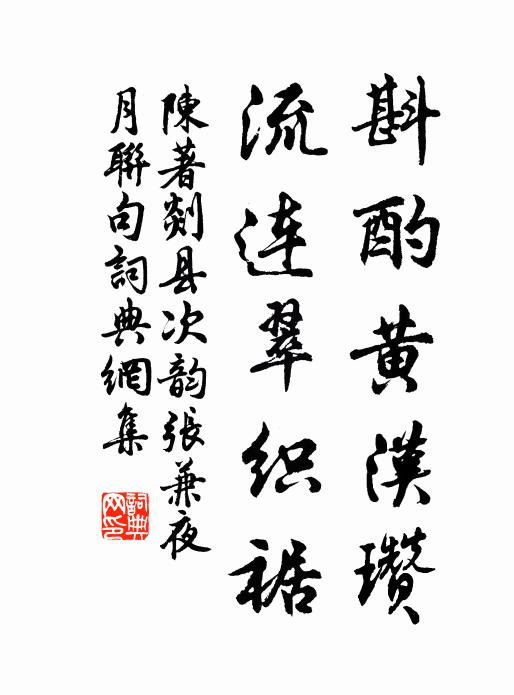 斟酌黄漢瓚
流连翠织裾
陳著剡县次韵張兼夜
月聯句詞典網集
詞典网印